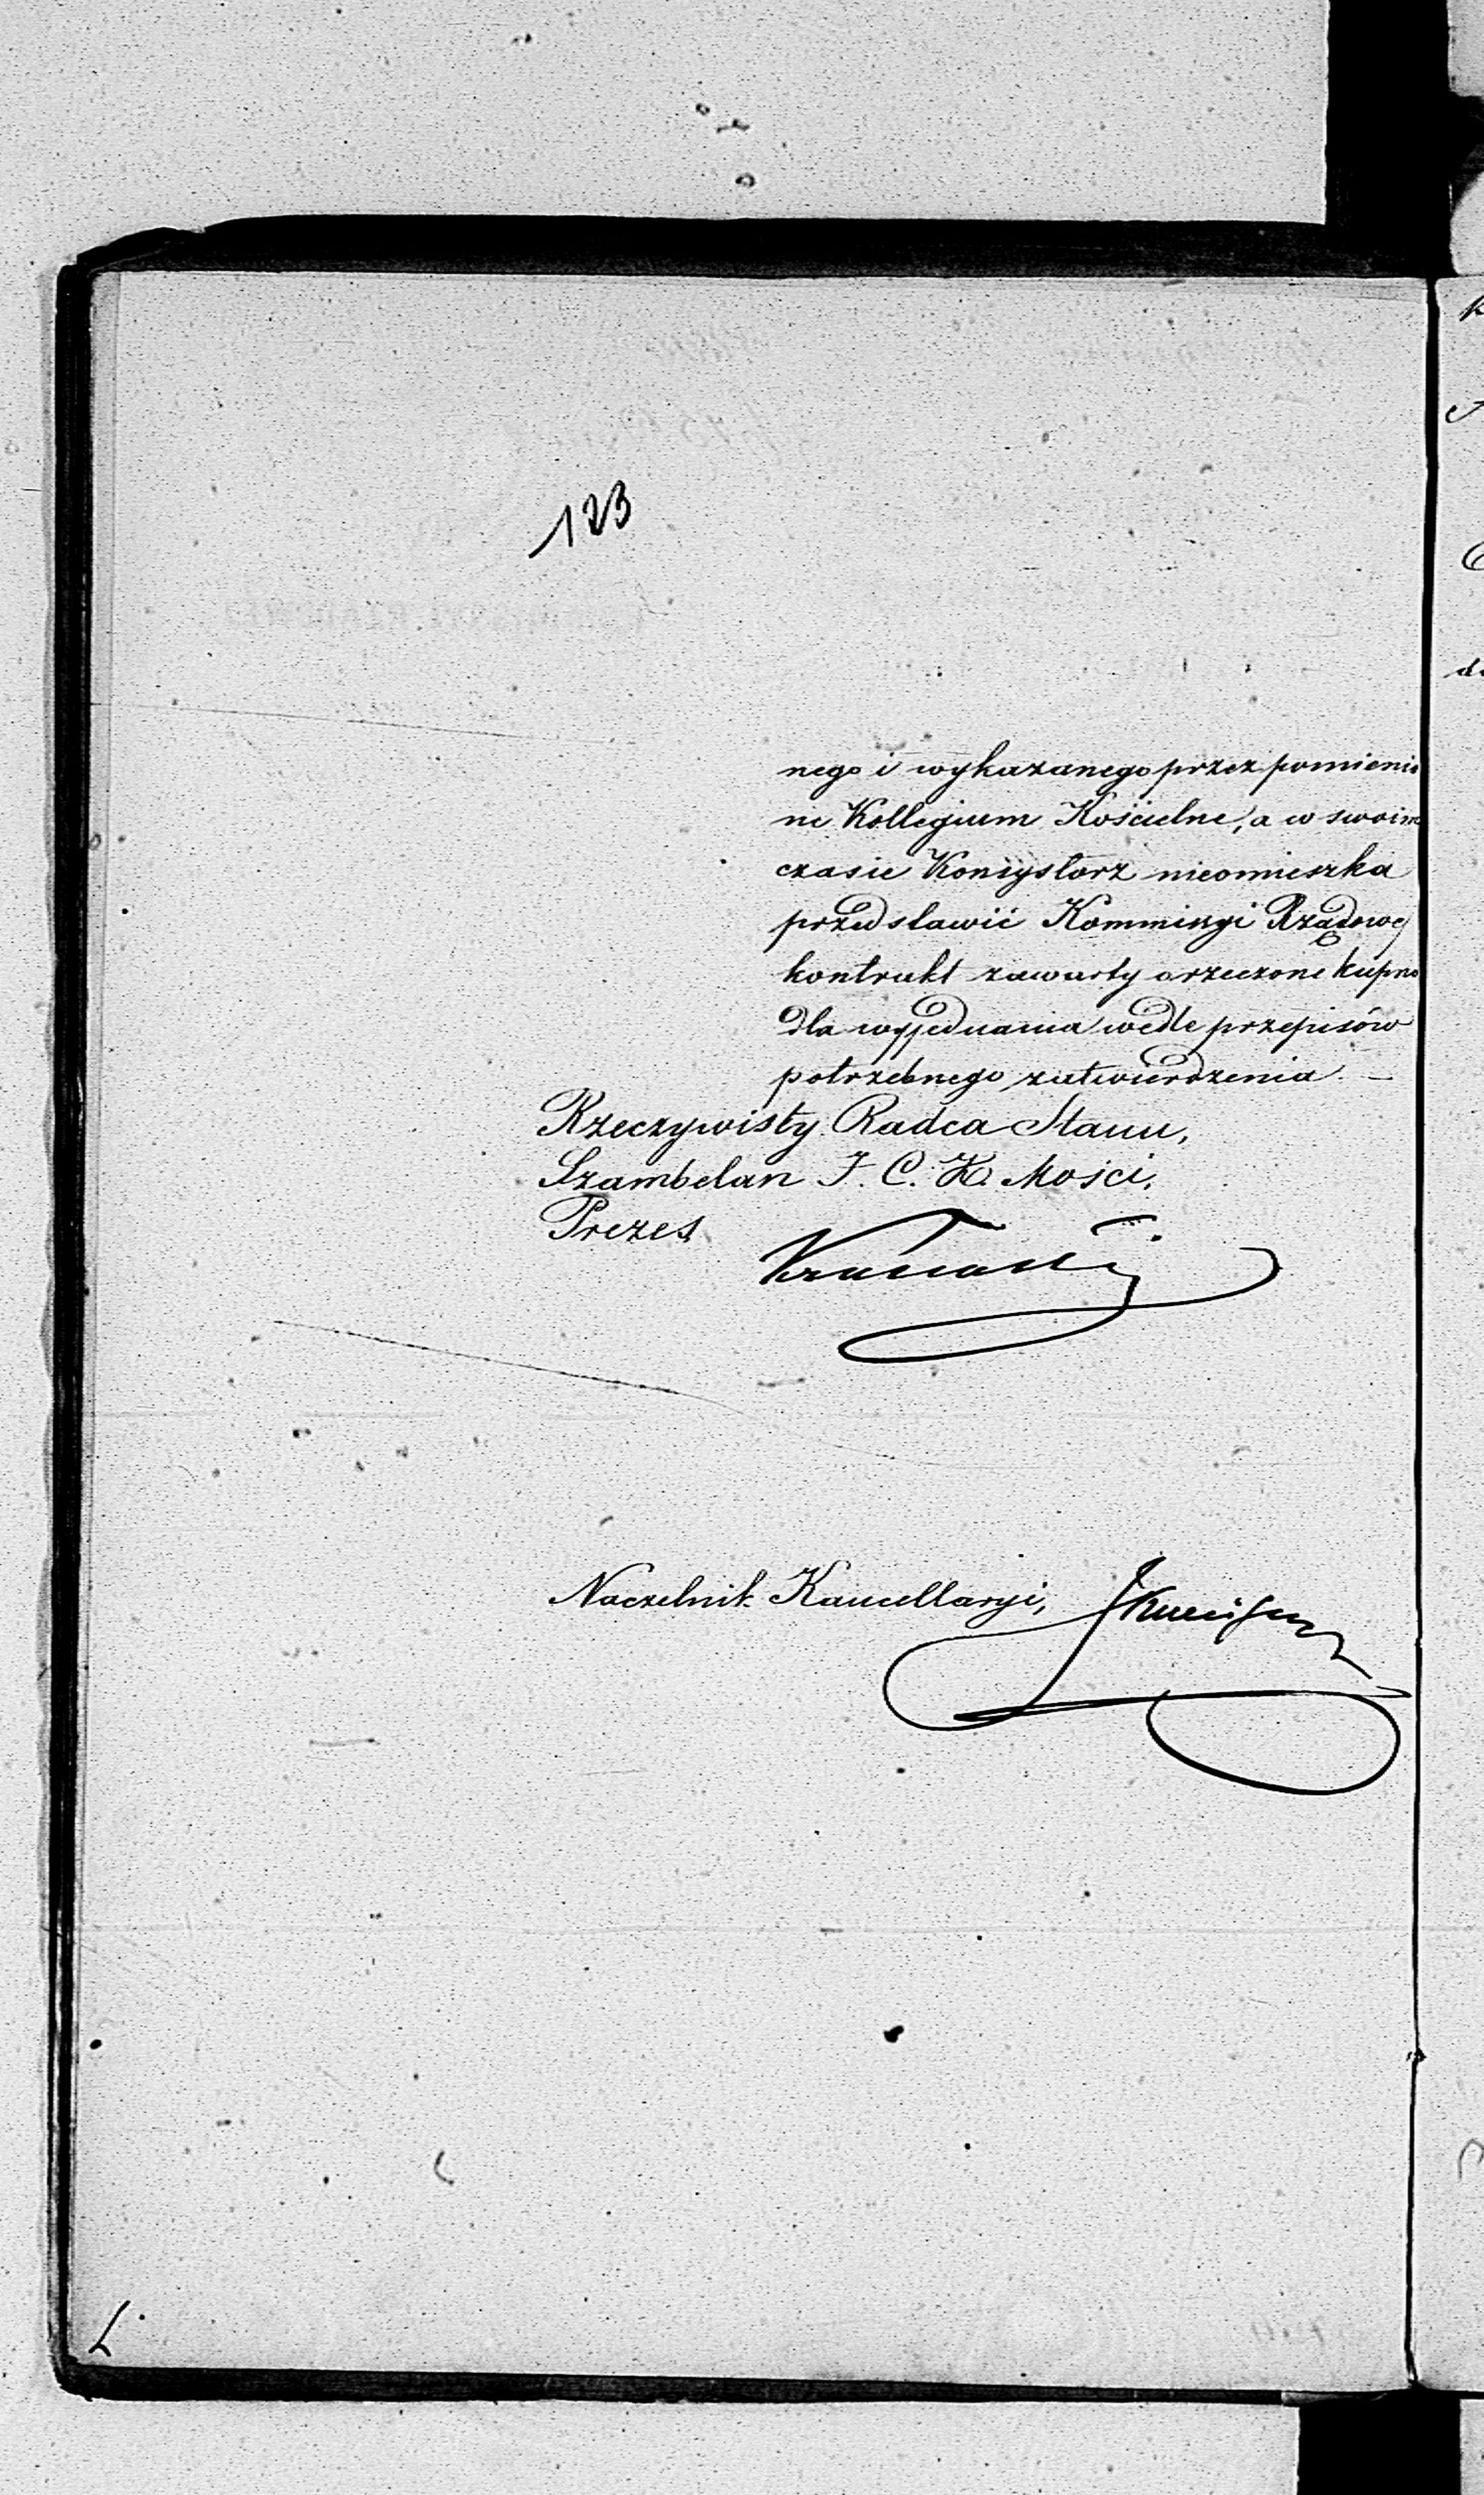 123
nego i wykazanego przez pomienio
ne Kollegium Kościelne, a w swoim
czasie Konsystorz nieomieszka
przedstawić Kommissyi Rządowej
kontrakt zawarty o rzeczone kupno
dla wyjednania wedle przepisów
potrzebnego zatwierdzenia. —
Rzeczywisty Radca Stanu,
Szambelan J. C. K. Mości,
Prezes
Naczelnik Kancellaryi,
L.